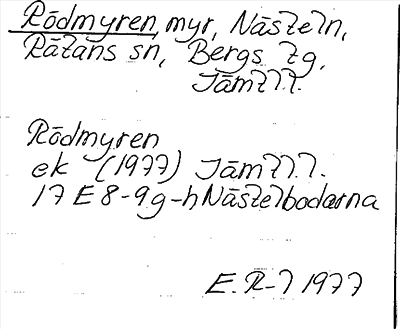 Rödmyren, myr, Nästeln,
Rätans sn, Bergs tg,
Jämtl.
Rödmyren
ek (1977) Jämtl.
17 E 8-9 g-h Nästelbodarna
E. R-l 1977